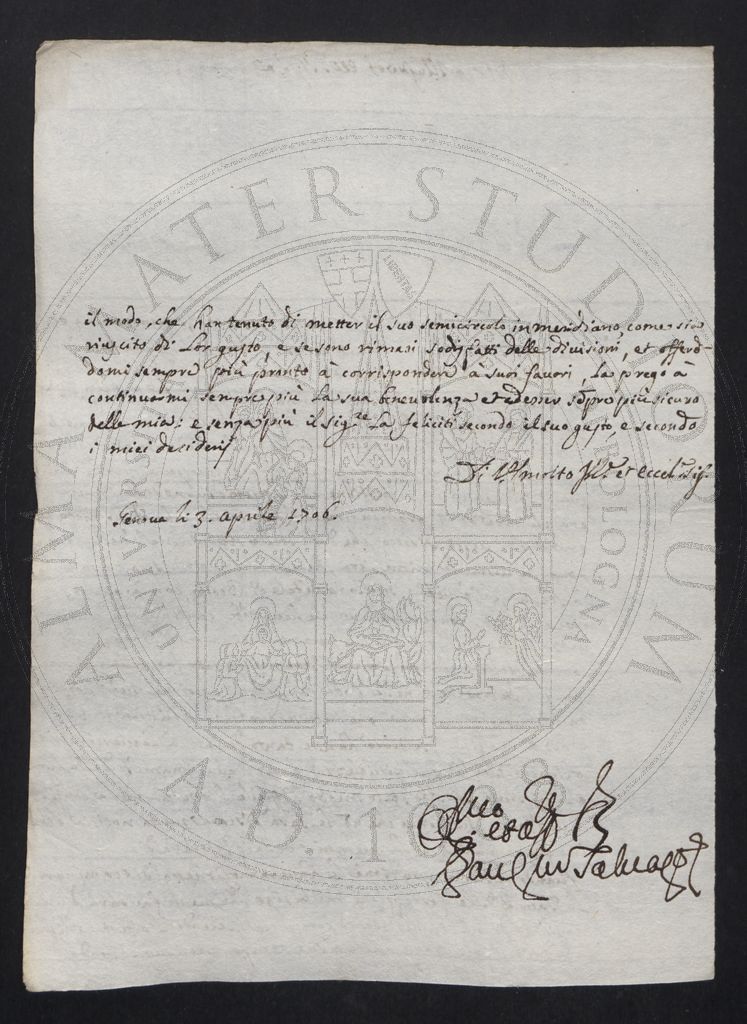 il modo, che han tenuto di metter il suo semicircolo in meridiano, come sia
riuscito di Lor gusto, e se sono rimasi sodisfatti delle divisioni, et offeren-
domi sempre più pronto à corrispondere à suoi favori, La prego à
continuarmi sempre più La sua benevolenza et ad esser sẽpre più sicuro
della mia: e senza più il sig.re La feliciti secondo il suo gusto, e secondo
i miei desiderij
Di V. S. molto Ill.e et eccel.
Genova li 3. aprile 1706.
Paul Salvago
ALMA MATER STUDIORUM
UNIVERSITÀ DI BOLOGNA
LIBERTAS
A.D. 1088